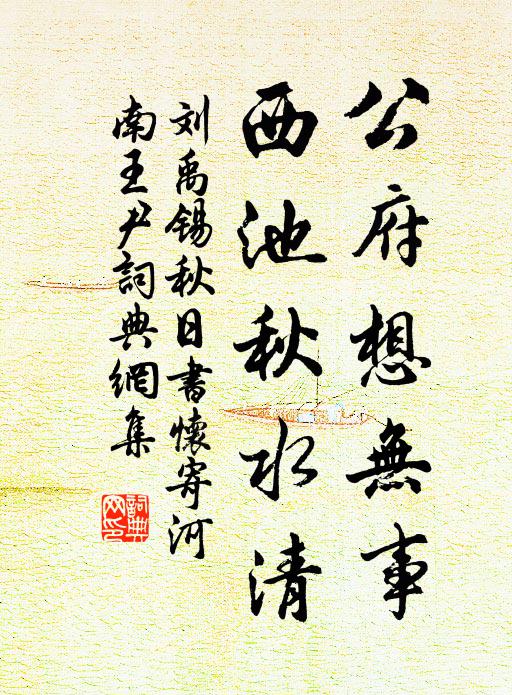 公府想無事
西池秋水清
刘禹锡秋日書懷寄河
南王尹詞典網集
詞典
网印